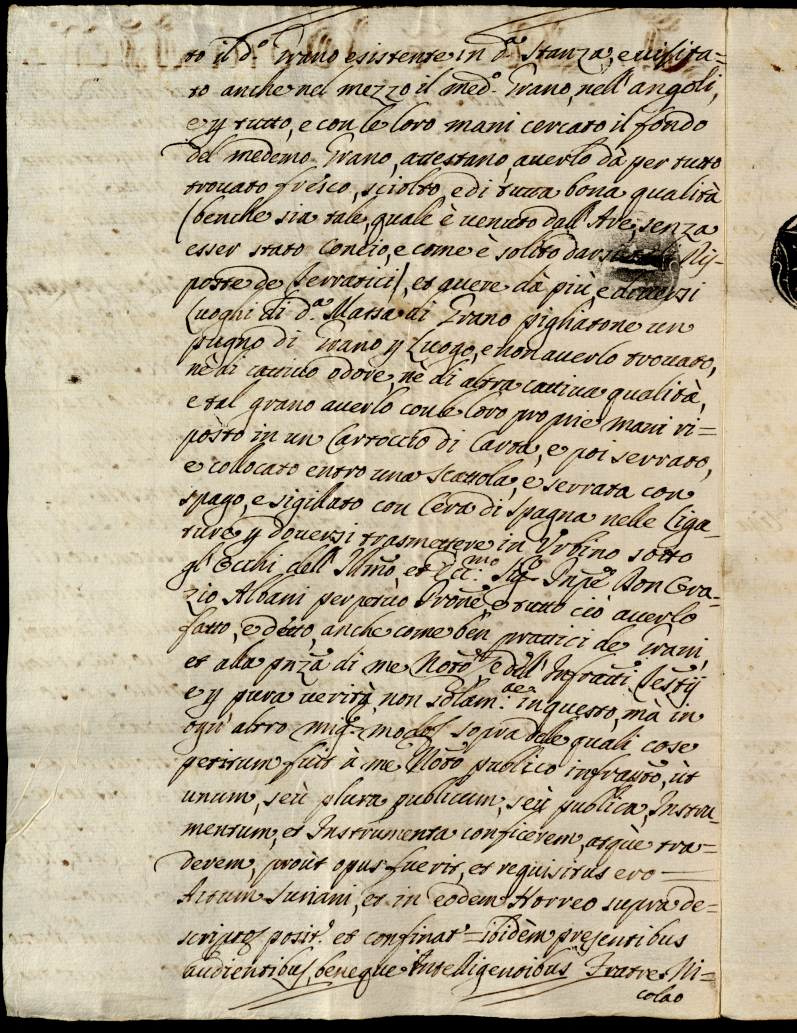 to il d.º Grano esistente in d.ª Stanza, e uisita=
to anche nel mezzo il med.º Grano, nell'angoli,
e p tutto, e con le loro mani cercato il fondo
del medemo Grano, attestano, auerlo dà per tutto
trouato fresco, sciolto, e di tutta bona qualità
(benche sia tale, quale è uenuto dall'Are, senza
esser stato Concio, e come è solito darsi Ris-
poste de Serratici/, et auere dà più, e diuersi
Luoghi di d.ª Massa di Grano pigliatone un
pugno di Grano p Luogo, e non auerlo trouato,
nè di cattiuo odore, nè di altra cattiua qualità,
e tal grano auerlo con le loro proprie mani ri=
posto in un Cartoccio di Carta, e poi serrato,
e collocato entro una Scattola, e serrata con
spago, e sigillato con Cera di Spagna nelle Liga-
ture p douersi trasmettere in Urbino sotto
gl'Occhi dell'Illmo et Ecc.mo Sig.r Don Ora-
zio Albani perpetuo Prone e tutto ciò auerlo
fatto, e detto, anche come ben prattici de Grani,
et alla pnza di me Notro e dell'Infratti Testij
e p pura uerità, non solam.te in questo, mà in
ogn'altro mig.r modo sopra dele quali cose
petitum fuit à me Notro publico infratto, ùt
unum, seù plura publicum, seù publica, Instru-
mentum, et Instrumenta conficerem, atquè tra=
derem, proùt opus fuerit, et requisitus ero
Actum Suriani, et in eodem Horreo supra de=
scripto posit.º et confinat= ibidèm presentibus
audientibus, beneque Intelligentibus Fratre Ni=
colao